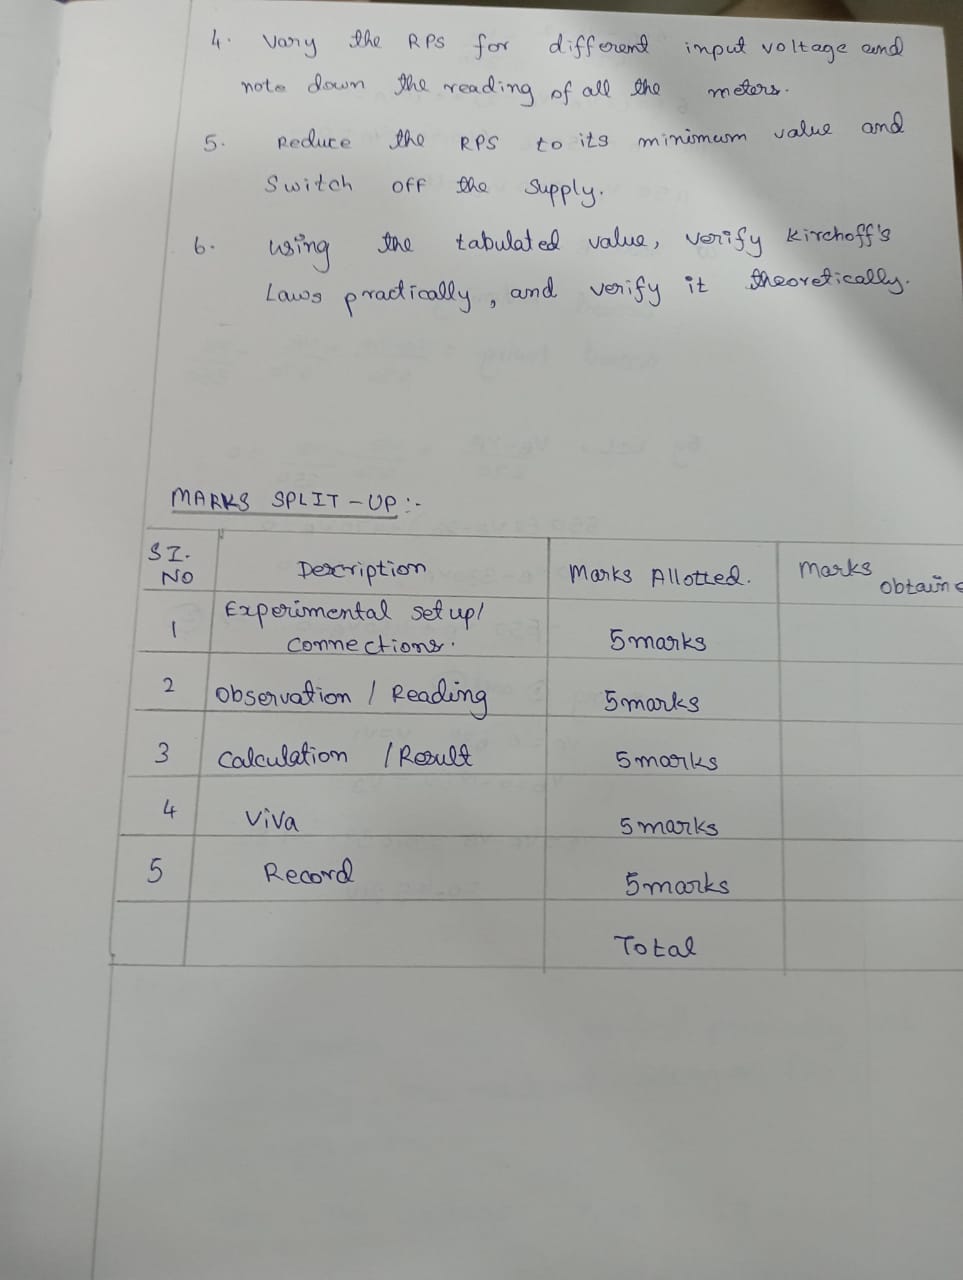 4. Vary the RPS for different input voltage and
note down the reading of all the meters.
5. Reduce the RPS to its minimum value and
Switch off the supply.
6. using the tabulated value, verify Kirchoff's
Laws practically, and verify it theoretically.
MARKS SPLIT-UP:-
SI. NO Description Marks Allotted. Marks obtaine
1 Experimental setup/ connections. 5 marks
2 Observation / Reading 5 marks
3 Calculation / Result 5 marks
4 Viva 5 marks
5 Record 5 marks
Total